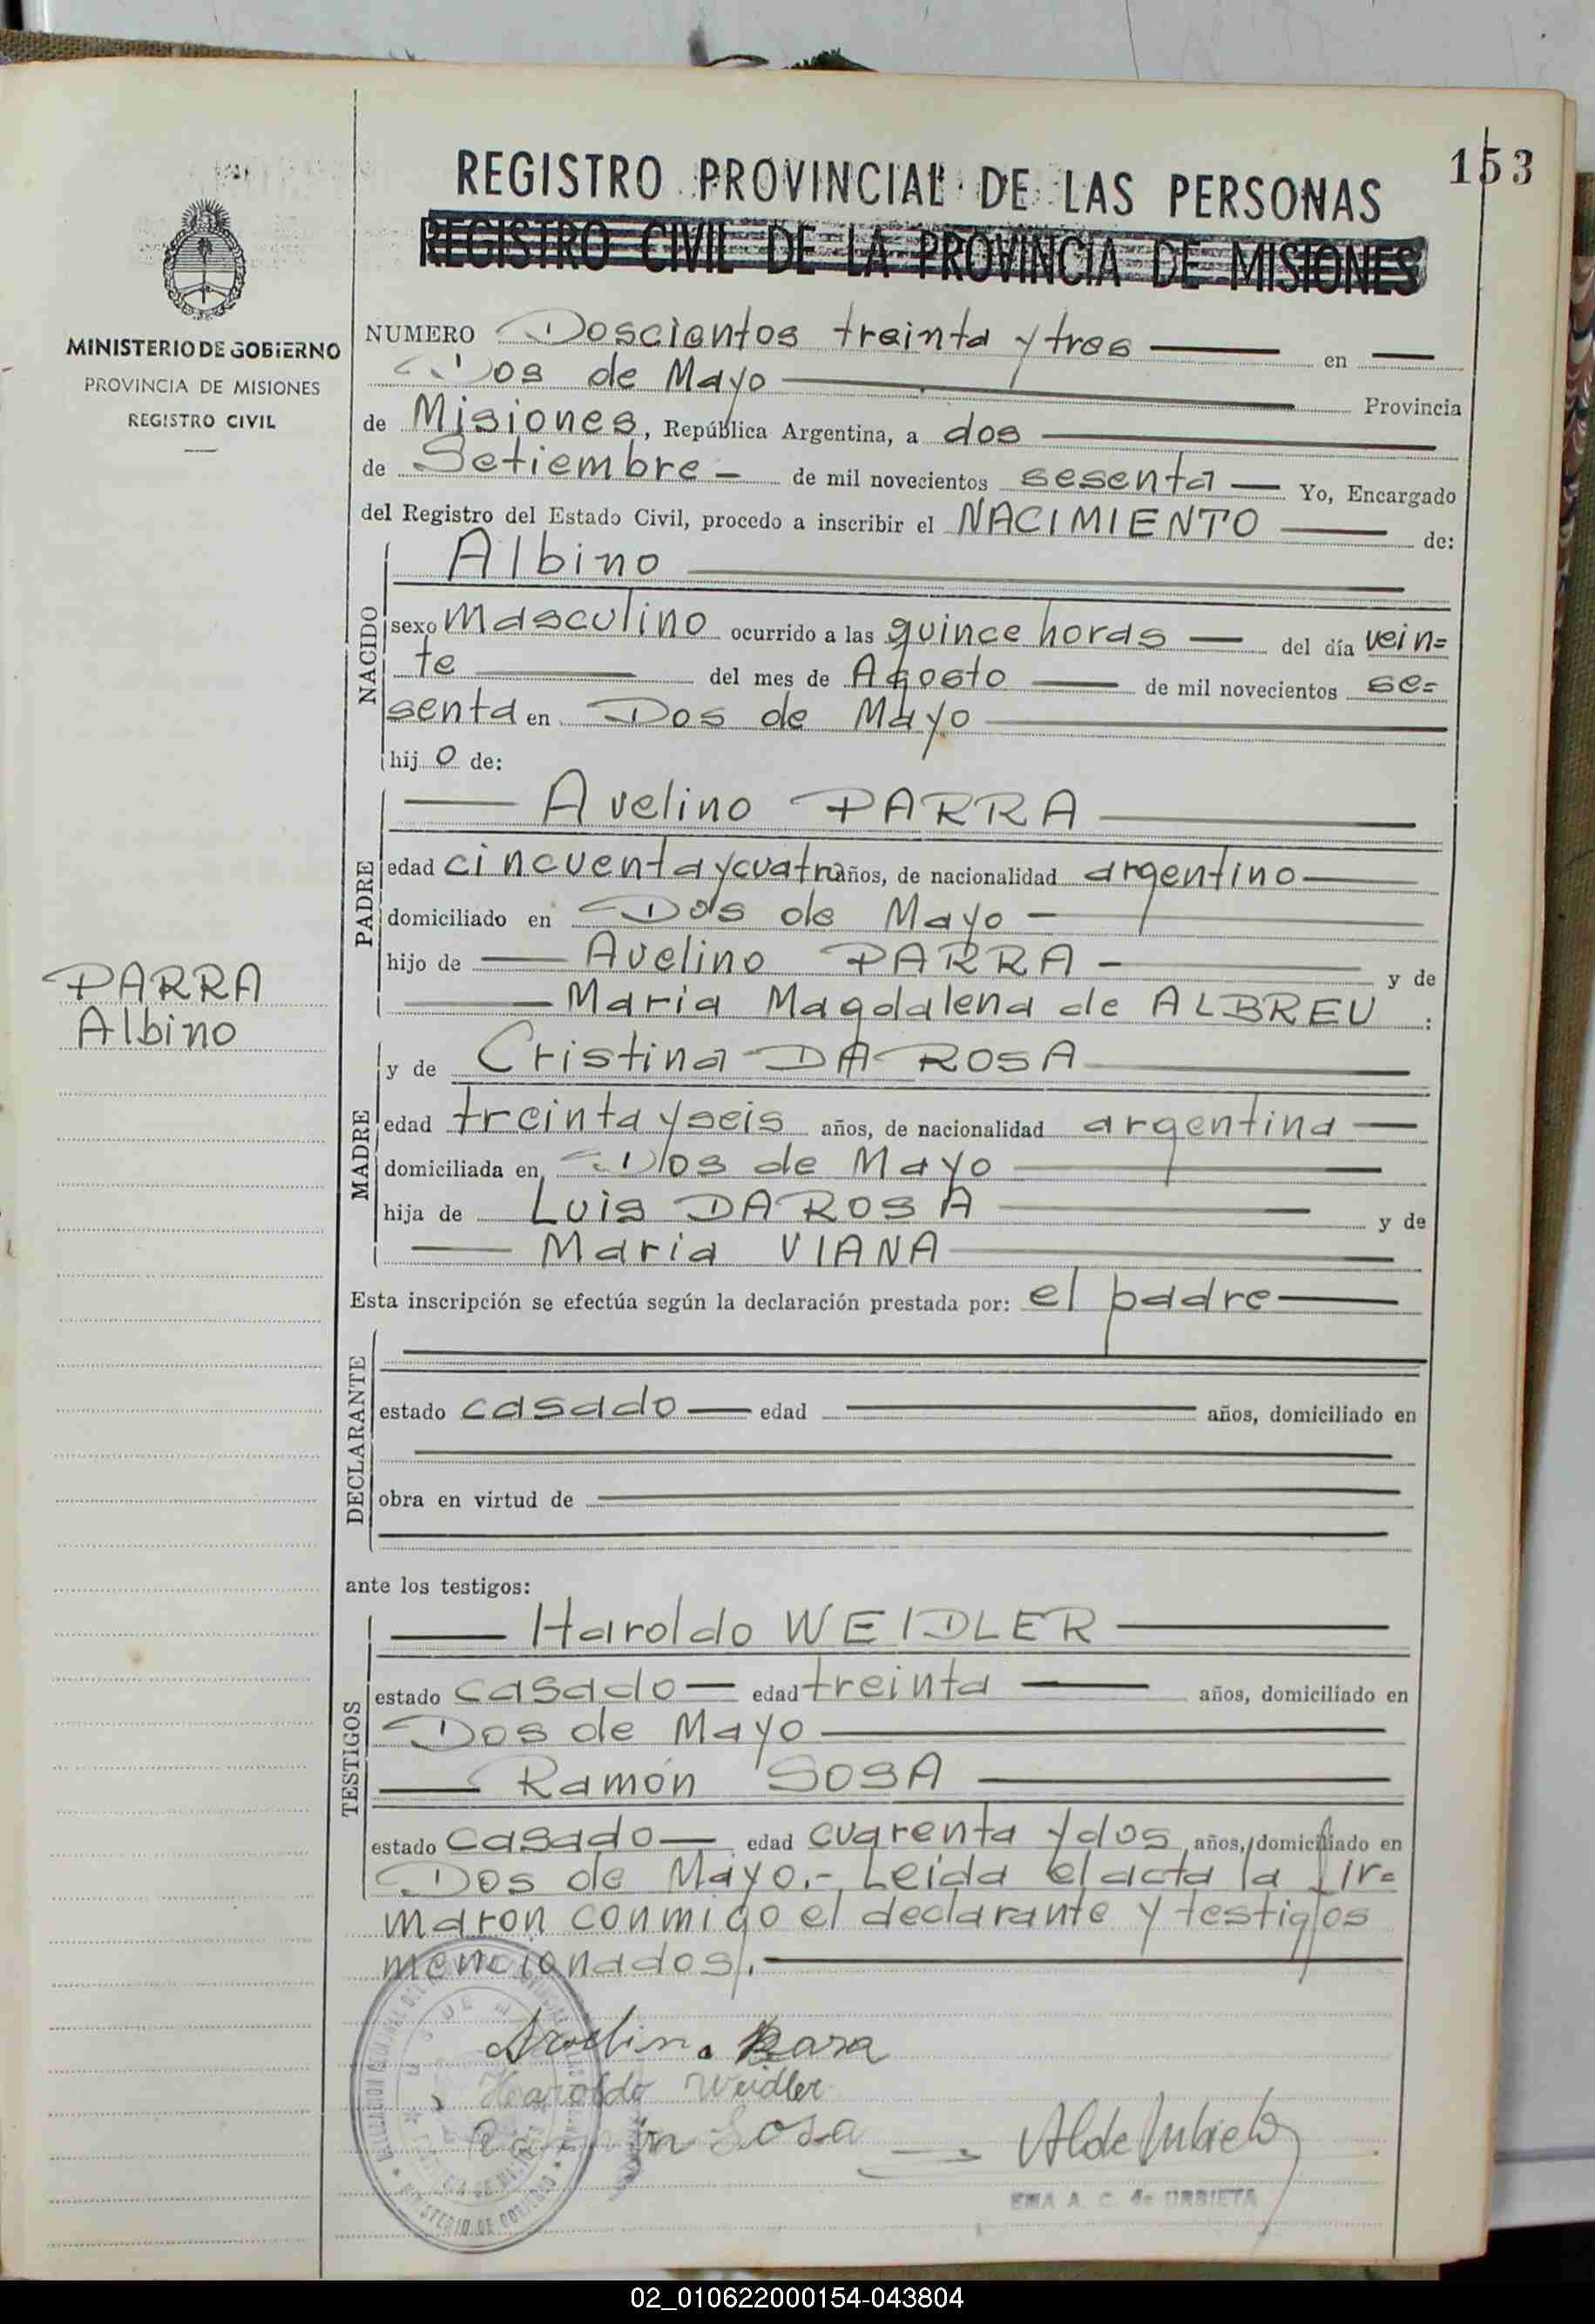 153
REGISTRO PROVINCIAL DE LAS PERSONAS
REGISTRO CIVIL DE LA PROVINCIA DE MISIONES
MINISTERIO DE GOBIERNO
PROVINCIA DE MISIONES
REGISTRO CIVIL
NUMERO Doscientos treinta y tres en
Dos de Mayo Provincia
de Misiones, República Argentina, a dos
de Setiembre de mil novecientos sesenta Yo, Encargado
del Registro del Estado Civil, procedo a inscribir el NACIMIENTO de:
NACIDO
Albino
sexo masculino ocurrido a las quince horas del día vein=
te del mes de Agosto de mil novecientos se=
senta en Dos de Mayo
hijo de:
PADRE
Avelino PARRA
edad cincuenta y cuatro años, de nacionalidad argentino
domiciliado en Dos de Mayo
hijo de Avelino PARRA y de
Maria Magdalena de ALBREU :
PARRA
Albino
MADRE
y de Cristina DA ROSA
edad treinta y seis años, de nacionalidad argentina
domiciliada en Dos de Mayo
hija de Luis DA ROSA y de
Maria VIANA
Esta inscripción se efectúa según la declaración prestada por: el padre
DECLARANTE
estado casado edad años, domiciliado en
obra en virtud de
ante los testigos:
TESTIGOS
Haroldo WEIDLER
estado casado edad treinta años, domiciliado en
Dos de Mayo
Ramón SOSA
estado casado edad cuarenta y dos años, domiciliado en
Dos de Mayo.- Leida el acta la fir=
maron conmigo el declarante y testigos
mencionados.
Avelino Para
Haroldo Weidler
Ramón Sosa
EMA A. C. de URBIETA
02_010622000154-043804